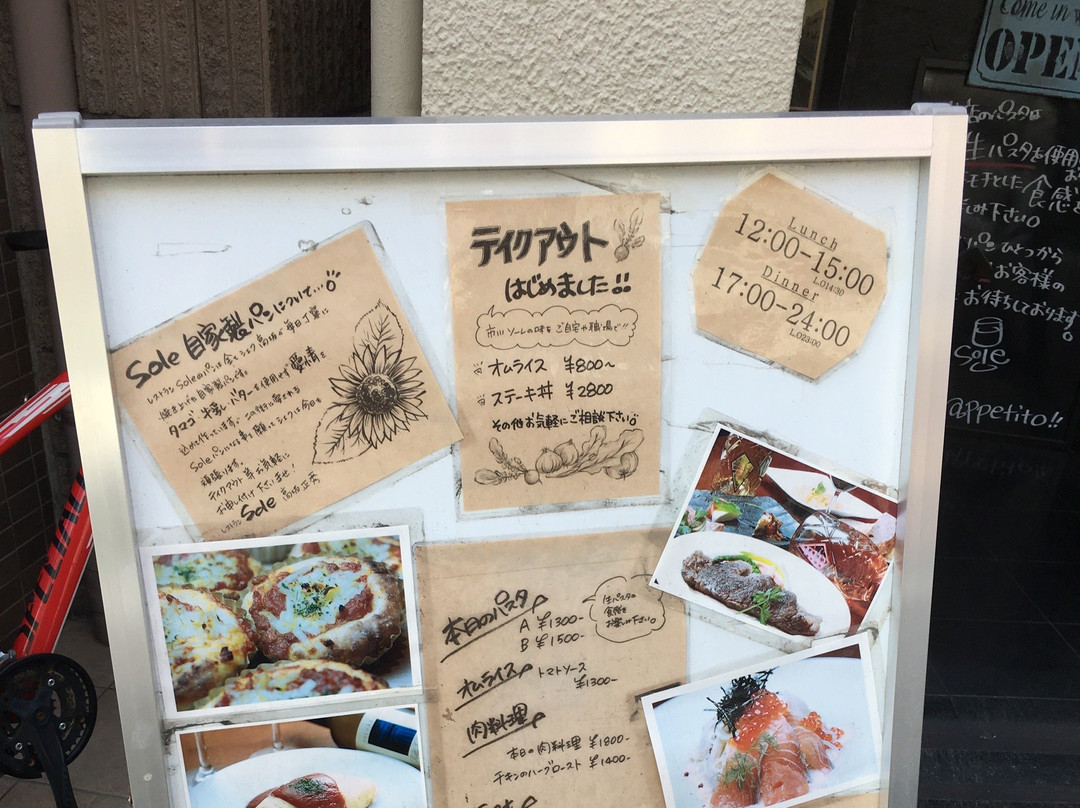 Come in
OPEN
Sole 自家製パンについて…
レストラン Soleのパンは全てシェフ高坂が毎日丁寧に
焼き上げた自家製パンです。
タマゴ、牛乳、バターを使用せず愛情を
込めて作っています。この街に愛される
Soleパンになる事を願ってシェフは今日も
頑張ります。
テイクアウト等お気軽に
お申し付け下さいませ!
レストラン Sole 高坂正秀
テイクアウト
はじめました!!
市川ソーレの味をご自宅や職場で!!
オムライス ¥800〜
ステーキ丼 ¥2800
その他お気軽にご相談下さい。
Lunch
12:00-15:00
LO14:30
Dinner
17:00-24:00
LO23:00
本日のパスタ
A ¥1300-
B ¥1500-
生パスタの
食感を
お楽しみ下さい。
オムライス トマトソース
¥1300-
肉料理
本日の肉料理 ¥1800-
チキンのハーブロースト ¥1400-
店のパスタは
生パスタを使用
モチとした食感を
しみ下さい。
ひとつから
お客様の
お待ちしております。
Sole
appetito!!